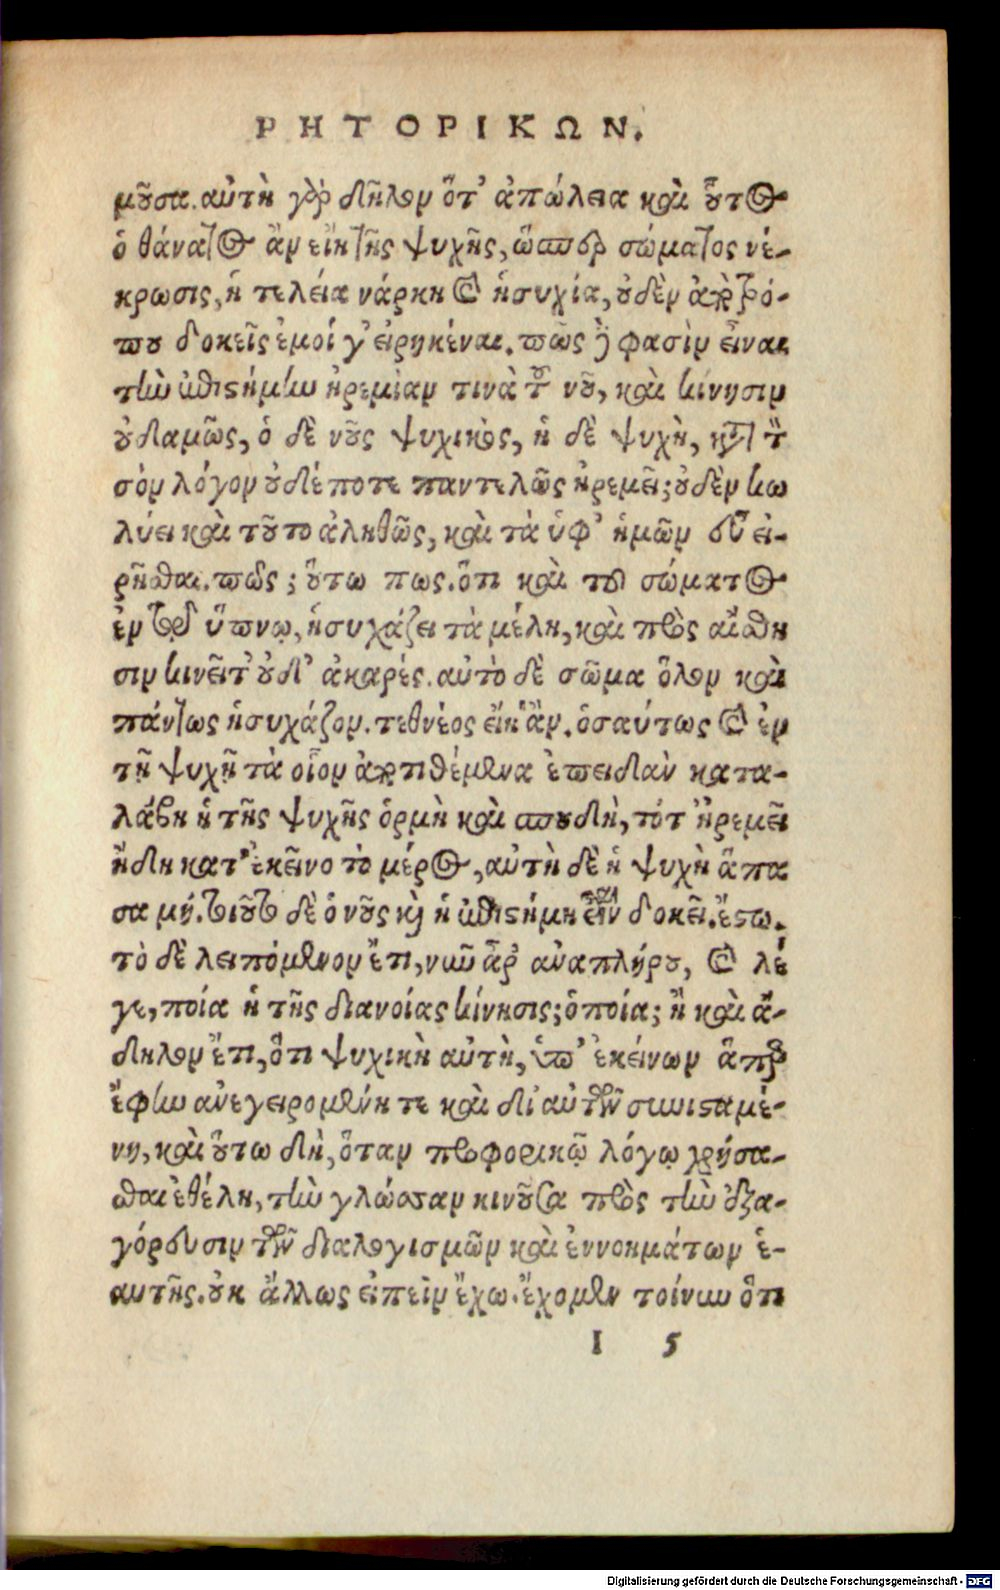 ΡΗΤΟΡΙΚΩΝ.
μοῦσα. αὐτὴ γὰρ δῆλον ὅτ' ἀπώλεια καὶ οὗτος
ὁ θάνατος ἂν εἴη τῆς ψυχῆς, ὥσπερ σώματος νέ-
κρωσις, ἡ τελεία νάρκη καὶ ἡσυχία, οὐδὲν ἀπὸ τρό-
που δοκεῖς ἐμοί γ' εἰρηκέναι. πῶς οὖν φασὶν εἶναι
τὴν ἐπιστήμην ἠρεμίαν τινὰ τοῦ νοῦ, καὶ κίνησιν
οὐδαμῶς, ὁ δὲ νοῦς ψυχικὸς, ἡ δὲ ψυχὴ, κατὰ τὸν
σὸν λόγον οὐδέποτε παντελῶς ἠρεμεῖ; οὐδὲν κω
λύει καὶ τοῦτο ἀληθῶς, καὶ τὰ ὑφ' ἡμῶν εὖ εἰ-
ρῆσθαι. πῶς; οὕτω πως. ὅτι καὶ τοῦ σώματος
ἐν τῷ ὕπνῳ, ἡσυχάζει τὰ μέλη, καὶ πρὸς αἴσθη
σιν κινεῖτ' οὐδ' ἀκαρές. αὐτὸ δὲ σῶμα ὅλον καὶ
πάντως ἡσυχάζον. τεθνέος εἴη ἄν. ὁσαύτως καὶ ἐν
τῇ ψυχῇ τὰ οἷον ἀντιθέμενα ἐπειδὰν κατα-
λάβη ἡ τῆς ψυχῆς ὁρμὴ καὶ σπουδὴ, τότ' ἠρεμεῖ
ἤδη κατ' ἐκεῖνο τὸ μέρος, αὐτὴ δὲ ἡ ψυχὴ ἅπα
σα μή. τοιοῦτο δὲ ὁ νοῦς καὶ ἡ ἐπιστήμη εἶναι δοκεῖ. ἔστω.
τὸ δὲ λειπόμενον ἔτι, νῦν ἆρ' ἀναπλήρου, καὶ λέ
γε, ποία ἡ τῆς διανοίας κίνησις; ὁποία; ἢ καὶ ἄ-
δηλον ἔτι, ὅτι ψυχικὴ αὐτὴ, ὑπ' ἐκείνων ἅπερ
ἔφην ἀνεγειρομένη τε καὶ δι' αὐτῶν συνισταμέ-
νη, καὶ οὕτω δὴ, ὅταν προφορικῷ λόγῳ χρήσα-
σθαι ἐθέλη, τὴν γλῶσσαν κινοῦσα πρὸς τὴν ἐξα-
γόρευσιν τῶν διαλογισμῶν καὶ ἐννοημάτων ἑ-
αυτῆς. οὐκ ἄλλως εἰπεῖν ἔχω. ἔχομεν τοίνυν ὅτι
I 5
Digitalisierung gefördert durch die Deutsche Forschungsgemeinschaft - DFG